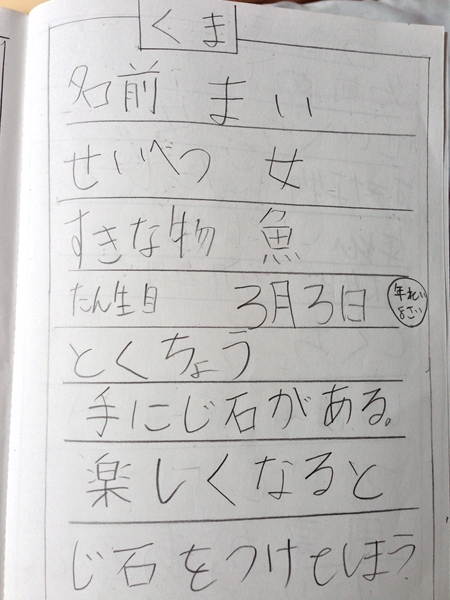 くま
名前 まい
せいべつ 女
すきな物 魚
たん生日 3月3日 年れい 8さい
とくちょう
手にじ石がある。
楽しくなると
じ石をつけてしまう